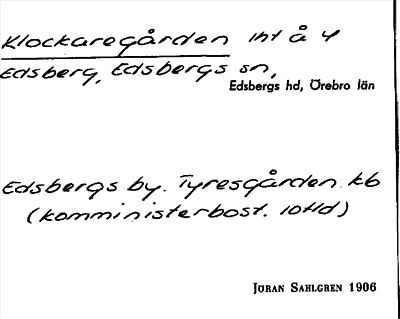 Klockaregården int å 4
Edsberg, Edsbergs sn,
Edsbergs hd, Örebro län
Edsbergs by. Tyresgården kb
(komministerbost. 10Hd)
JÖRAN SAHLGREN 1906